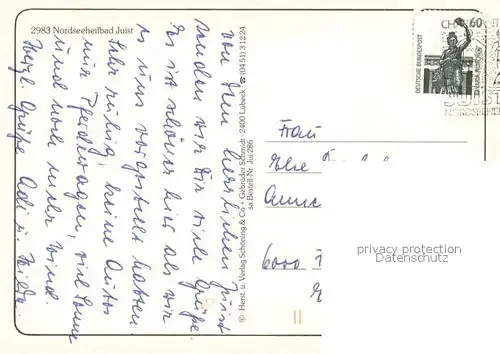 2983 Nordseeheilbad Juist
Von dem herrlichen Juist
senden wir Dir viele Grüße.
Es ist schöner hier als wir
es uns vorgestellt hatten.
Sehr ruhig, keine Autos
nur Pferdewagen, viel Sonne
und noch mehr Wind.
Herzl. Grüße
© Herst. u. Verlag Schöning & Co + Gebrüder Schmidt · 2400 Lübeck · ☎ (0451) 31224
Bestell-Nr. Jui 286
60
DEUTSCHE BUNDESPOST
JUIST
Frau
Else
6000
privacy protection
Datenschutz